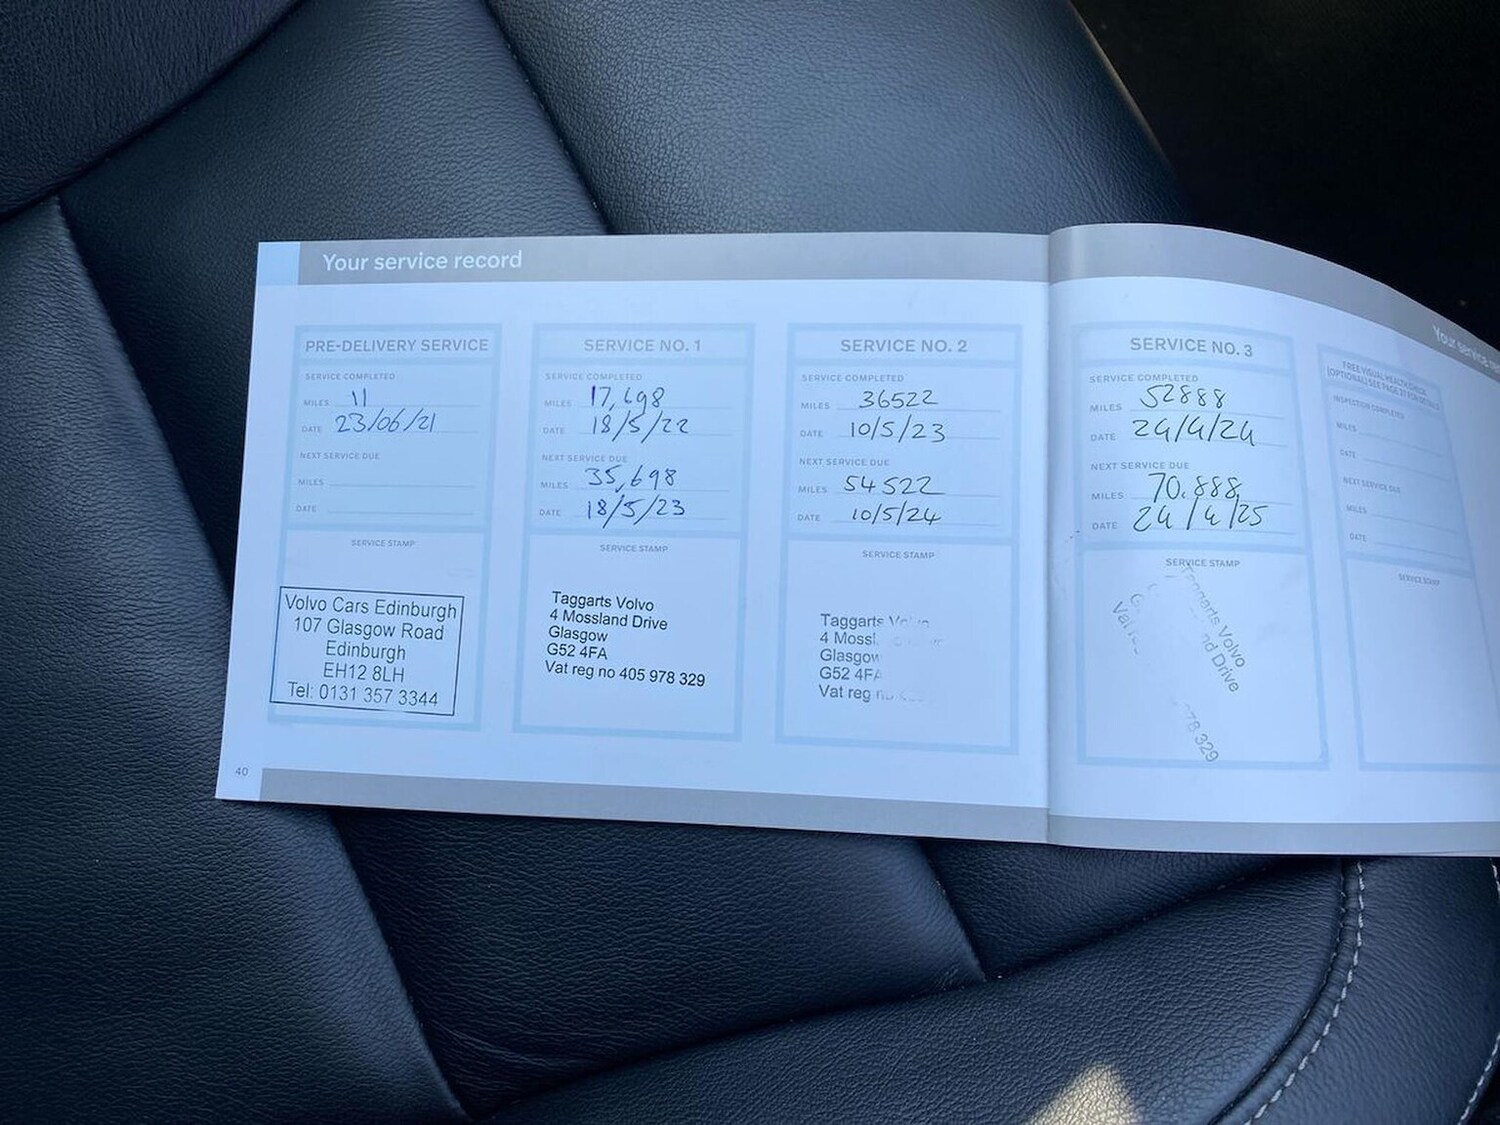 Your service record
PRE-DELIVERY SERVICE
SERVICE COMPLETED
MILES 11
DATE 23/06/21
NEXT SERVICE DUE
MILES
DATE
SERVICE STAMP
Volvo Cars Edinburgh
107 Glasgow Road
Edinburgh
EH12 8LH
Tel: 0131 357 3344
40
SERVICE NO. 1
SERVICE COMPLETED
MILES 17,698
DATE 18/5/22
NEXT SERVICE DUE
MILES 35,698
DATE 18/5/23
SERVICE STAMP
Taggarts Volvo
4 Mossland Drive
Glasgow
G52 4FA
Vat reg no 405 978 329
SERVICE NO. 2
SERVICE COMPLETED
MILES 36522
DATE 10/5/23
NEXT SERVICE DUE
MILES 54522
DATE 10/5/24
SERVICE STAMP
Taggarts Volvo
4
Glasgow
G52 4FA
Vat reg
SERVICE NO. 3
SERVICE COMPLETED
MILES 52888
DATE 24/4/24
NEXT SERVICE DUE
MILES 70,888
DATE 24/4/25
SERVICE STAMP
Taggarts Volvo
Drive
329
Your service
FREE VISUAL HEALTH CHECK
(OPTIONAL) SEE PAGE 27 FOR DETAILS
INSPECTION COMPLETED
MILES
DATE
NEXT SERVICE DUE
MILES
DATE
SERVICE STAMP